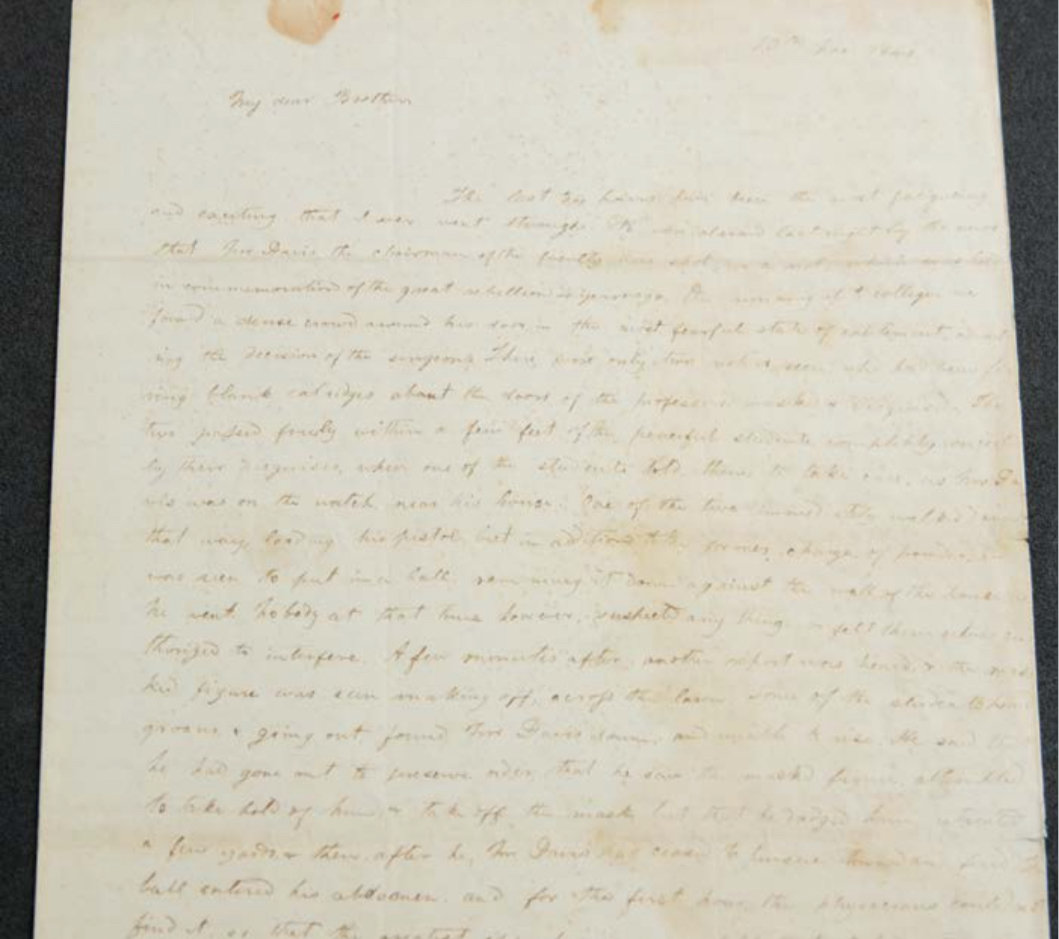 13th Nov 1840
My dear Brother
The last 20 hours have been the most fatiguing
and exciting that I ever went through. We were alarmed last night by the news
that Mr Davis the chairman of the faculty was shot, in a riot, which was
in commemoration of the great rebellion 4 years ago. On running up to college we
found a dense crowd around his door, in the most fearful state of excitement, await
ing the decision of the surgeons. There were only two rioters, seen, who had been fi
ring blank catridges about the doors of the professors, masked & disguised. The
two passed freely within a few feet of the peaceful students completely
by their disguises, when one of the students told them to take care, as Mr Da
vis was on the watch near his house. One of the two immediately walked down
that way, loading his pistol, but in addition to the former charge of powder,
was seen to put in a ball, ramming it down against the wall of the house as
he went. Nobody at that time however, suspected any thing, or felt themselves au
thorized to interfere. A few minutes after, another report was heard, & the mas
ked figure was seen making off, across the lawn. Some of the students heard
groans & going out found Mr Davis down, and unable to rise. He said that
he had gone out to preserve order, that he saw the masked figure, attempted
to take hold of him, & take off the mask but that he dodged him, retreated
a few yards & then, after he, Mr Davis had ceased to pursue
ball entered his abdomen, and for the first hour, the physicians could not
find it, so that the greatest